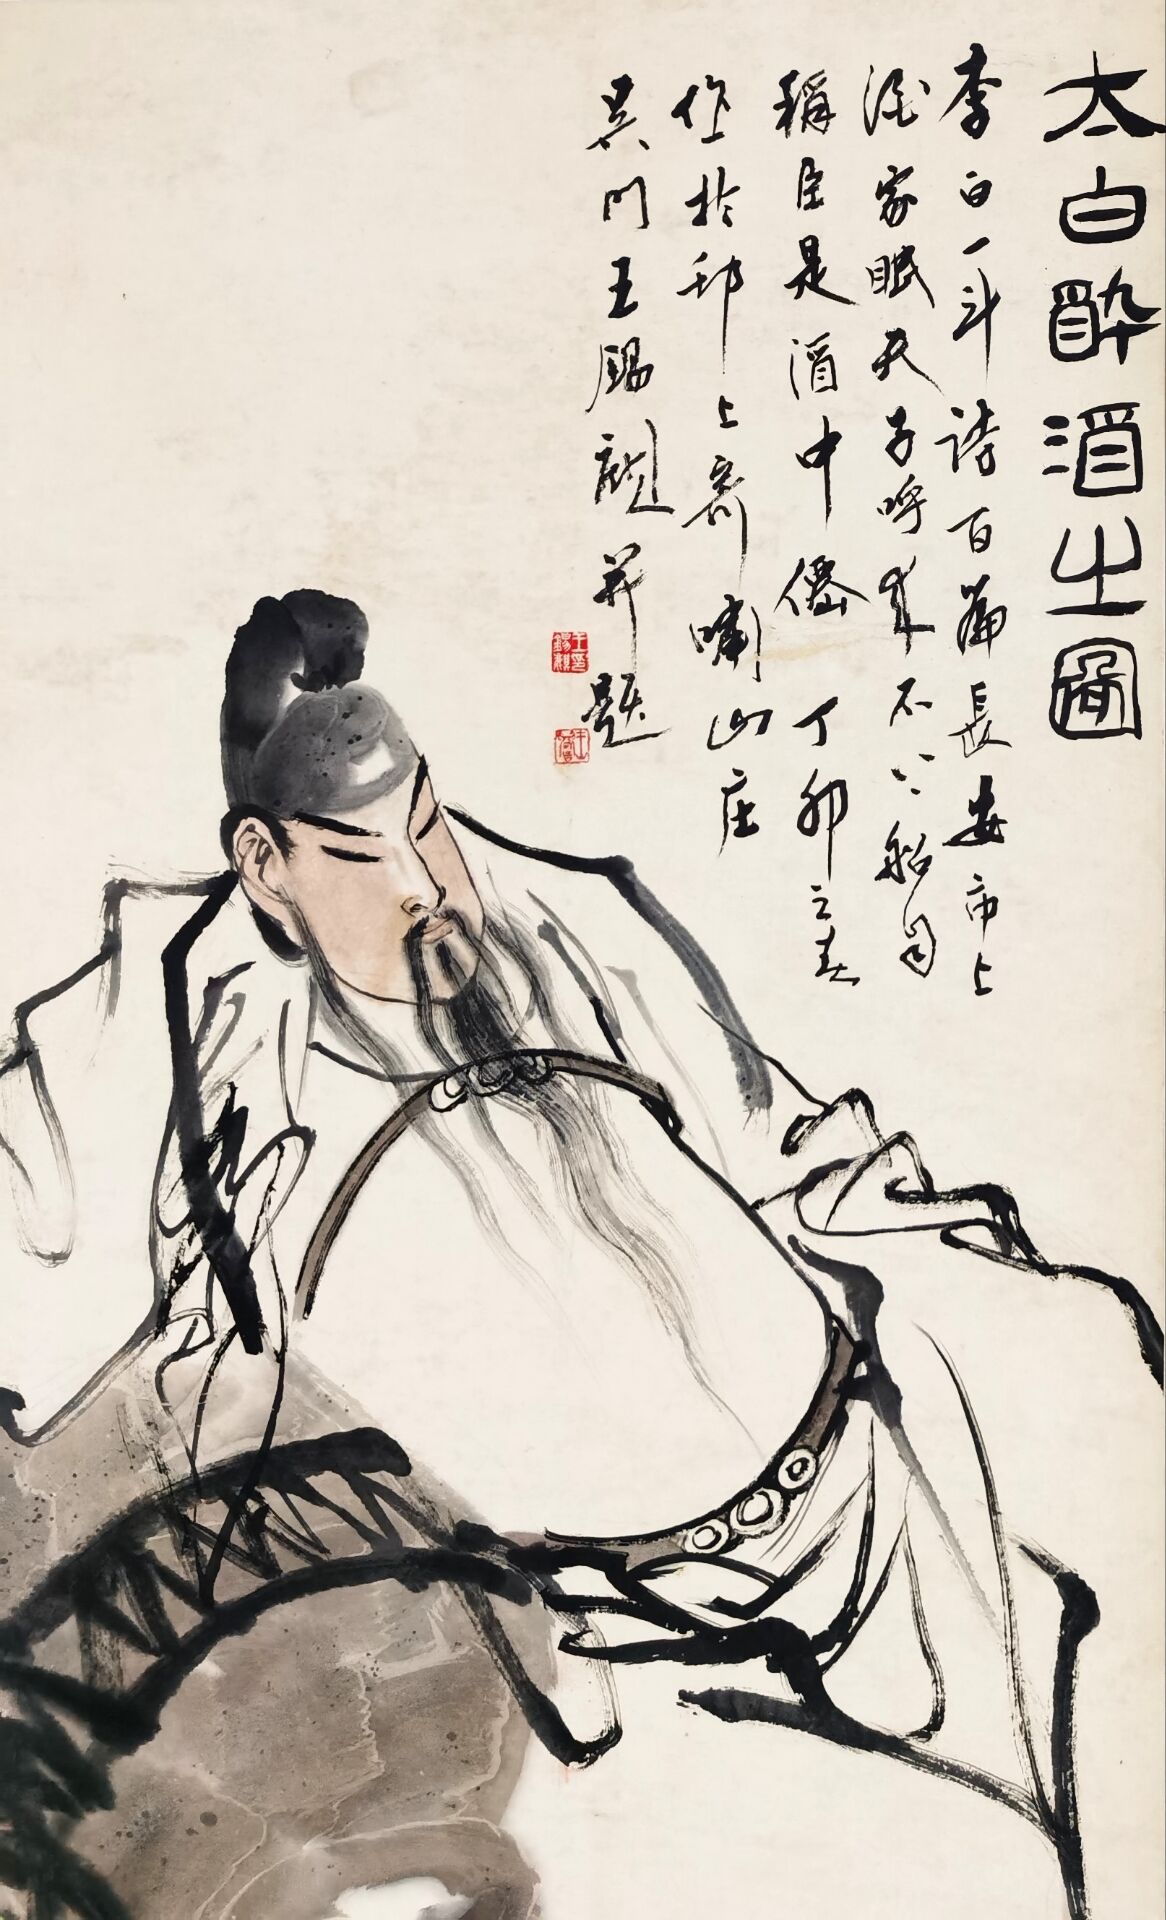 太白醉酒之圖
李白一斗詩百篇長安市上
酒家眠天子呼來不上船自
稱臣是酒中僊丁卯之春
作於邗上寄嘯山庄
吳門王錫麒并題
王錫麒印